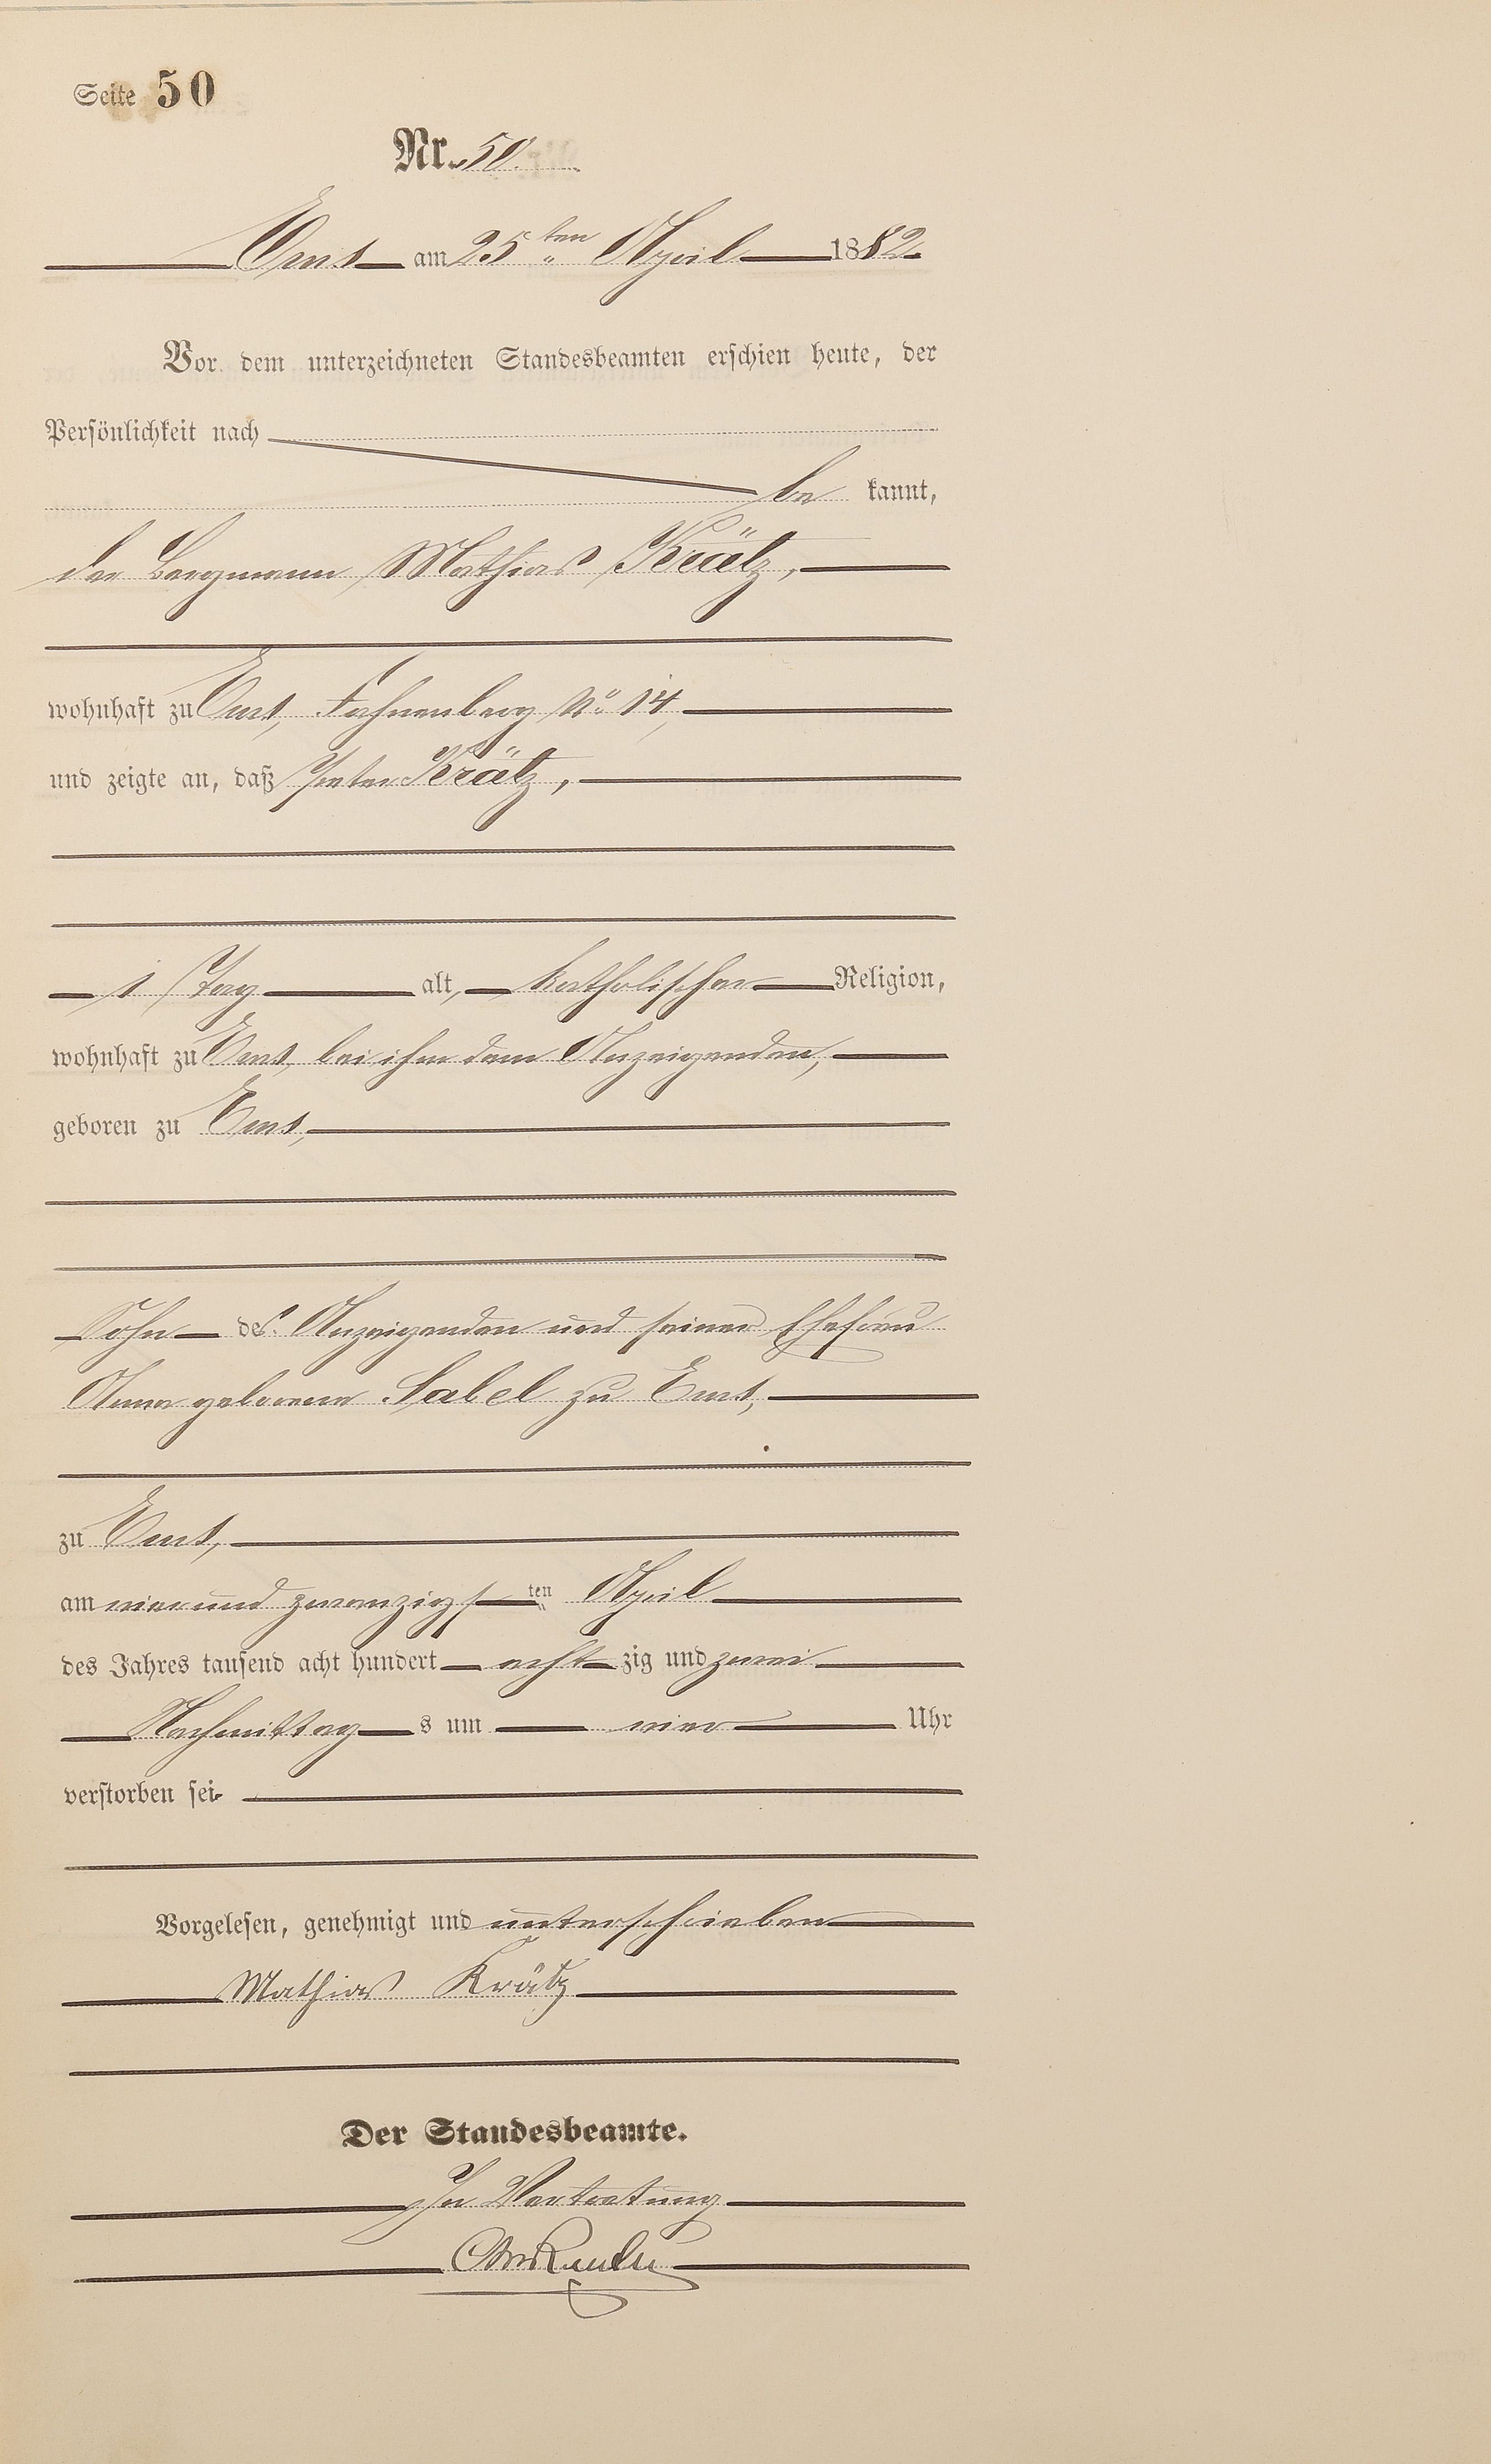 Seite 50
Nr. 50.
Ems am 25ten April 1882.
Vor dem unterzeichneten Standesbeamten erschien heute, der
Persönlichkeit nach
be kannt,
der Bergmann Mathias Krätz,
wohnhaft zu Ems, Fahnenberg No 14,
und zeigte an, daß Peter Krätz,
1 Tag alt, katholischer Religion,
wohnhaft zu Ems, bei ihm dem Anzeigenden,
geboren zu Ems,
Sohn des Anzeigenden und seiner Ehefrau
Anna geborene Sabel zu Ems,
zu Ems,
am vierundzwanzigsten April
des Jahres tausend acht hundert achtzig und zwei
Nachmittags um vier Uhr
verstorben sei.
Vorgelesen, genehmigt und unterschrieben
Mathias Krätz
Der Standesbeamte.
In Vertretung